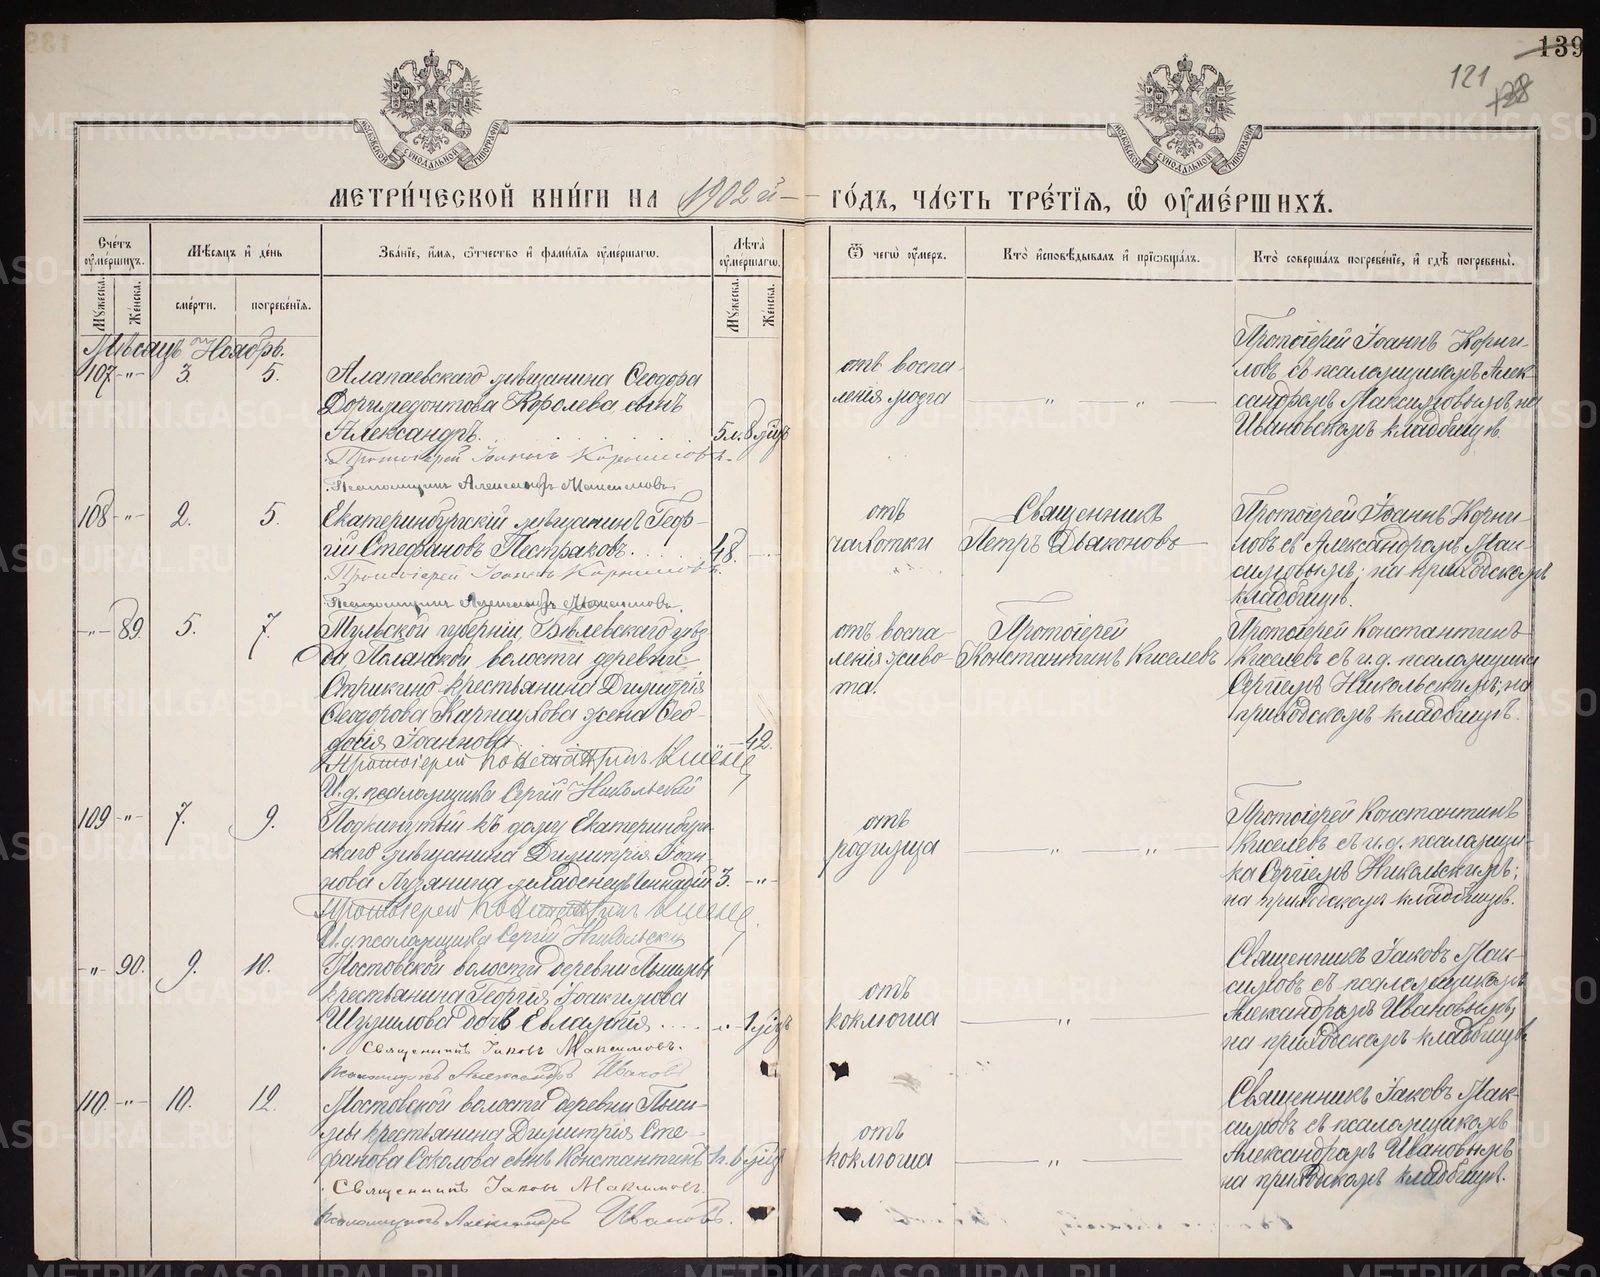 139
121
МЕТРИ́ЧЕСКОЙ КНИ́ГИ НА 1902 й ГО́ДЪ, ЧА́СТЬ ТРЕ́ТІѦ, Ѽ ОУМЕ́РШИХЪ.
Сче́тъ оуме́ршихъ.
Мѣ́сяцъ и де́нь
Зва́ніе, и́мя, ѻ́тчество и фами́лія оуме́ршагѡ.
Лѣта̀ оуме́ршагѡ.
Ѿ чегѡ̀ оу́меръ.
Кто̀ исповѣ́дывалъ и пріѡбща́лъ.
Кто̀ соверша́лъ погребе́ніе, и гдѣ̀ погребены̀.
Мꙋ́жеска.
Же́нска.
сме́рти.
погребе́нія.
Мꙋ́жеска.
Же́нска.
Мѣсяцъ Ноябрь.
107 -"- 3. 5.
Алапаевскаго мѣщанина Ѳеодора
Доримедонтова Королева сынъ
Александръ. 5 л. 8 мцъ
Протоіерей Іоаннъ Корниловъ.
Псаломщикъ Александръ Максимовъ
отъ воспа-
ленія мозга
Протоіерей Іоаннъ Корни-
ловъ съ псаломщикомъ Алек-
сандромъ Максимовымъ, на
Ивановскомъ кладбищѣ.
108 -"- 2. 5.
Екатеринбургскій мѣщанинъ Геор-
гій Стефановъ Пестряковъ. 48.
Протоіерей Іоаннъ Корниловъ.
Псаломщикъ Александръ Максимовъ.
отъ
чахотки
Священникъ
Петръ Дьяконовъ
Протоіерей Іоаннъ Корни-
ловъ съ Александромъ Мак-
симовымъ; на приходскомъ
кладбищѣ.
-"- 89. 5. 7.
Тульской губерніи, Бѣлевскаго уѣз-
да волости деревни
Стрикино крестьянина Димитрія
Ѳеодорова Карнаухова жена Ѳео-
досія Іоаннова 42.
Протоіерей Константинъ Киселевъ
И. д. псаломщика Сергій Никольскій
отъ воспа-
ленія живо-
та.
Протоіерей
Константинъ Киселевъ
Протоіерей Константинъ
Киселевъ съ и. д. псаломщика
Сергіемъ Никольскимъ; на
приходскомъ кладбищѣ.
109 -"- 7. 9.
Подкинутый къ дому Екатеринбург-
скаго мѣщанина Димитрія Іоан-
нова Лузянина младенецъ Геннадій 3. -"-
Протоіерей Константинъ Киселевъ
И. д. псаломщика Сергій Никольскій
отъ
родимца
Протоіерей Константинъ
Киселевъ съ и. д. псаломщи-
ка Сергіемъ Никольскимъ;
на приходскомъ кладбищѣ.
-"- 90. 9. 10.
Мостовской волости деревни Пышмы
крестьянина Георгія Іоакимова
Шумилова дочь Евлампія. -"- 1 мцъ
Священникъ Іаковъ Максимовъ.
Псаломщикъ Александръ Ивановъ
отъ
коклюша
Священникъ Іаковъ Мак-
симовъ съ псаломщикомъ
Александромъ Ивановымъ,
на приходскомъ кладбищѣ.
110. -"- 10. 12.
Мостовской волости деревни Пыш-
мы крестьянина Димитрія Сте-
фанова Соколова сынъ Константинъ 6 мцъ
Священникъ Іаковъ Максимовъ.
Псаломщикъ Александръ Ивановъ.
отъ
коклюша
Священникъ Іаковъ Мак-
симовъ съ псаломщикомъ
Александромъ Ивановымъ
на приходскомъ кладбищѣ.